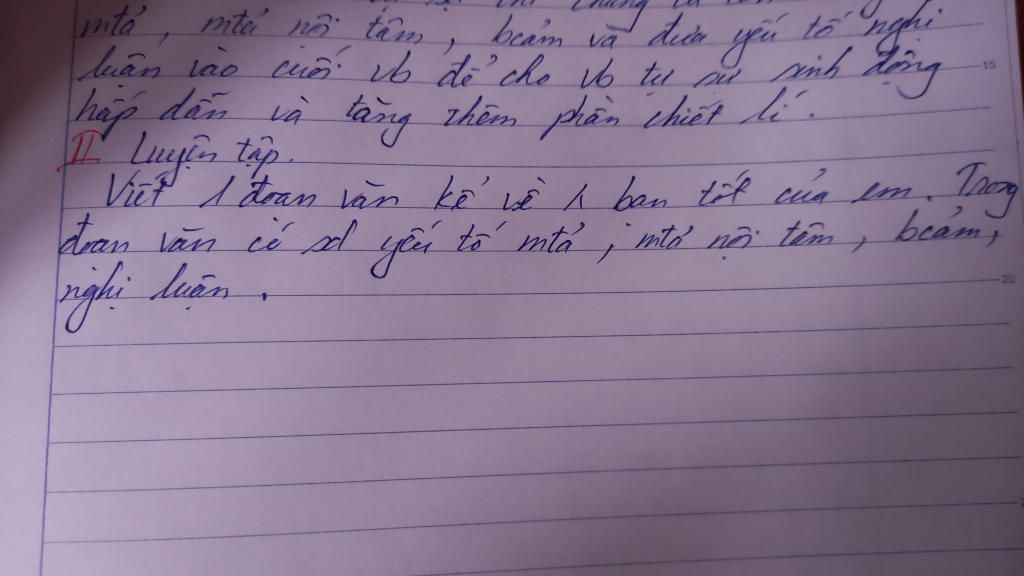 mtả, mtả nội tâm, bcảm và đưa yếu tố nghị
luận vào cuối vb để cho vb tự sự sinh động
hấp dẫn và tăng thêm phần chiết lí.
15
II Luyện tập.
Viết 1 đoan văn kể về 1 ban tốt của em. Trong
đoan văn có sd yếu tố mtả, mtả nội tâm, bcảm,
nghị luận.
20